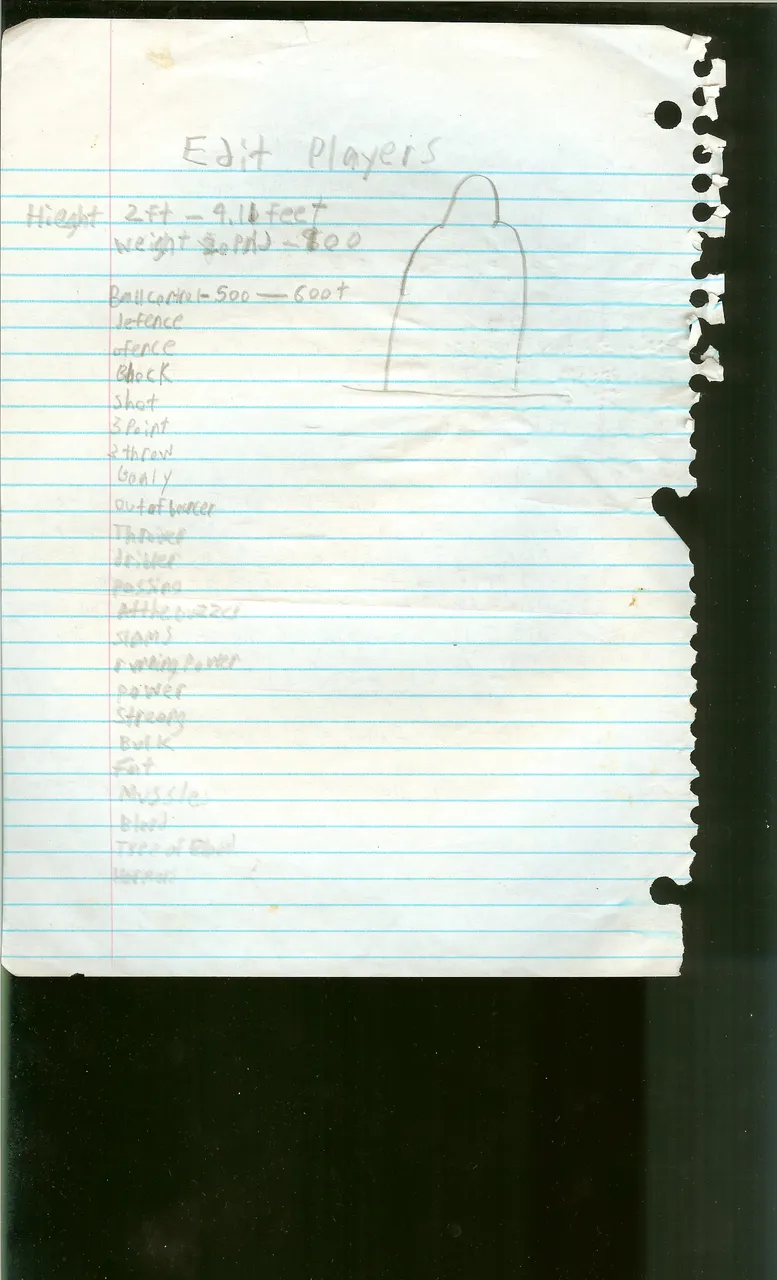 Edit Players
Hieght 2ft – 9.11 feet
weight – 800
Ballcontrol - 500 — 600t
defence
ofence
Block
Shot
3 Point
3 throw
Goaly
out of bouncer
Thrower
dribber
passing
Atthebuzzer
slams
running power
power
Streang
Bulk
Fat
Mussle
Blood
Tree of Blood